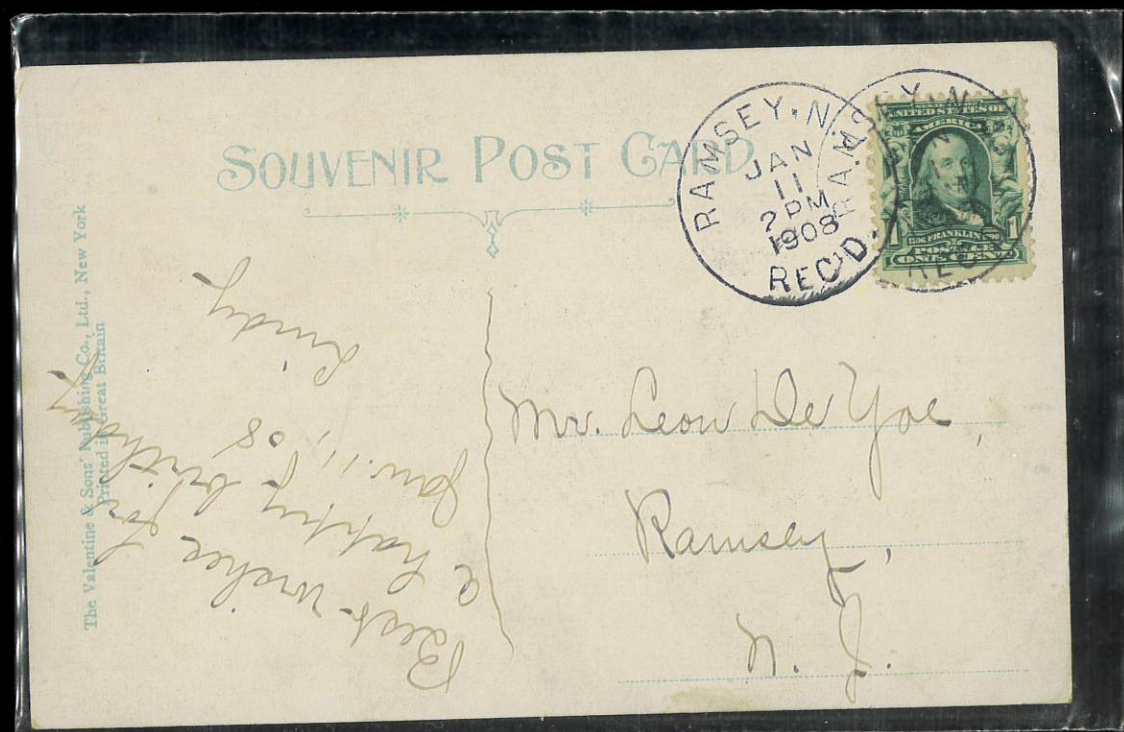 SOUVENIR POST CARD
RAMSEY, N.
JAN
11
2 PM
1908
REC'D.
RAMSEY, N.
REC
UNITED STATES OF
AMERICA
1 1
FRANKLIN
POSTAGE
ONE CENT
The Valentine & Sons' Publishing Co., Ltd., New York
Printed in Great Britain
Best wishes for
a happy birthday
Jan. 11, '08
Mr. Leon De Yoe,
Ramsey,
N. J.